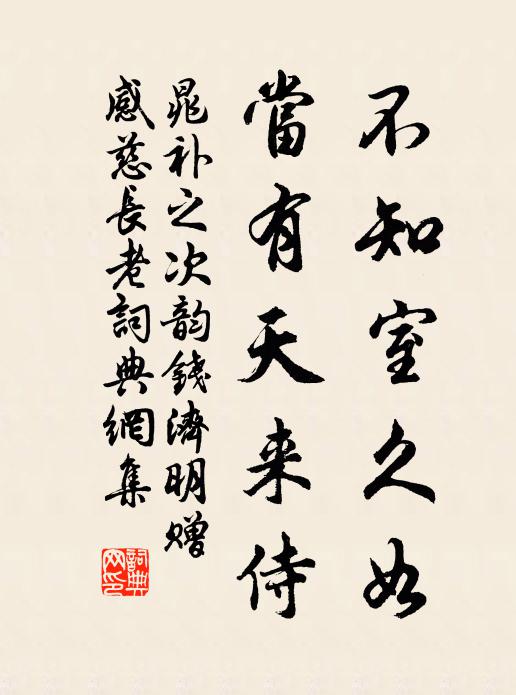 不知室久如
當有天来侍
晁补之次韵錢濟明贈
感慈長老詞典網集
詞典网印